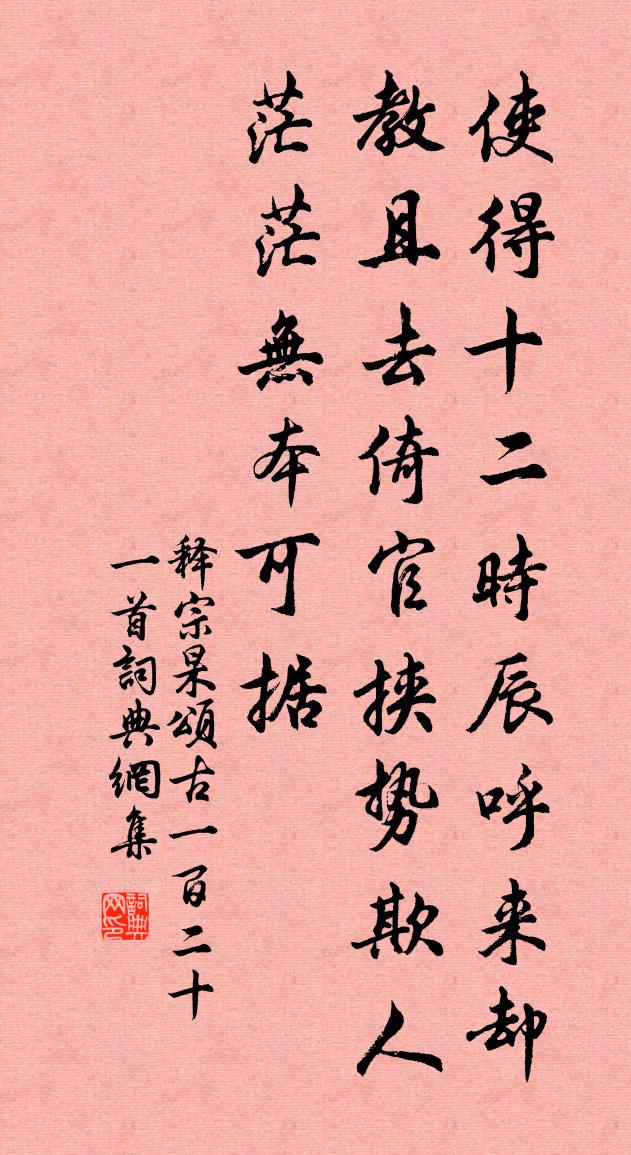 使得十二時辰呼来却
教且去倚官挟势欺人
茫茫無本可据
释宗杲頌古一百二十
一首詞典網集
詞典网印